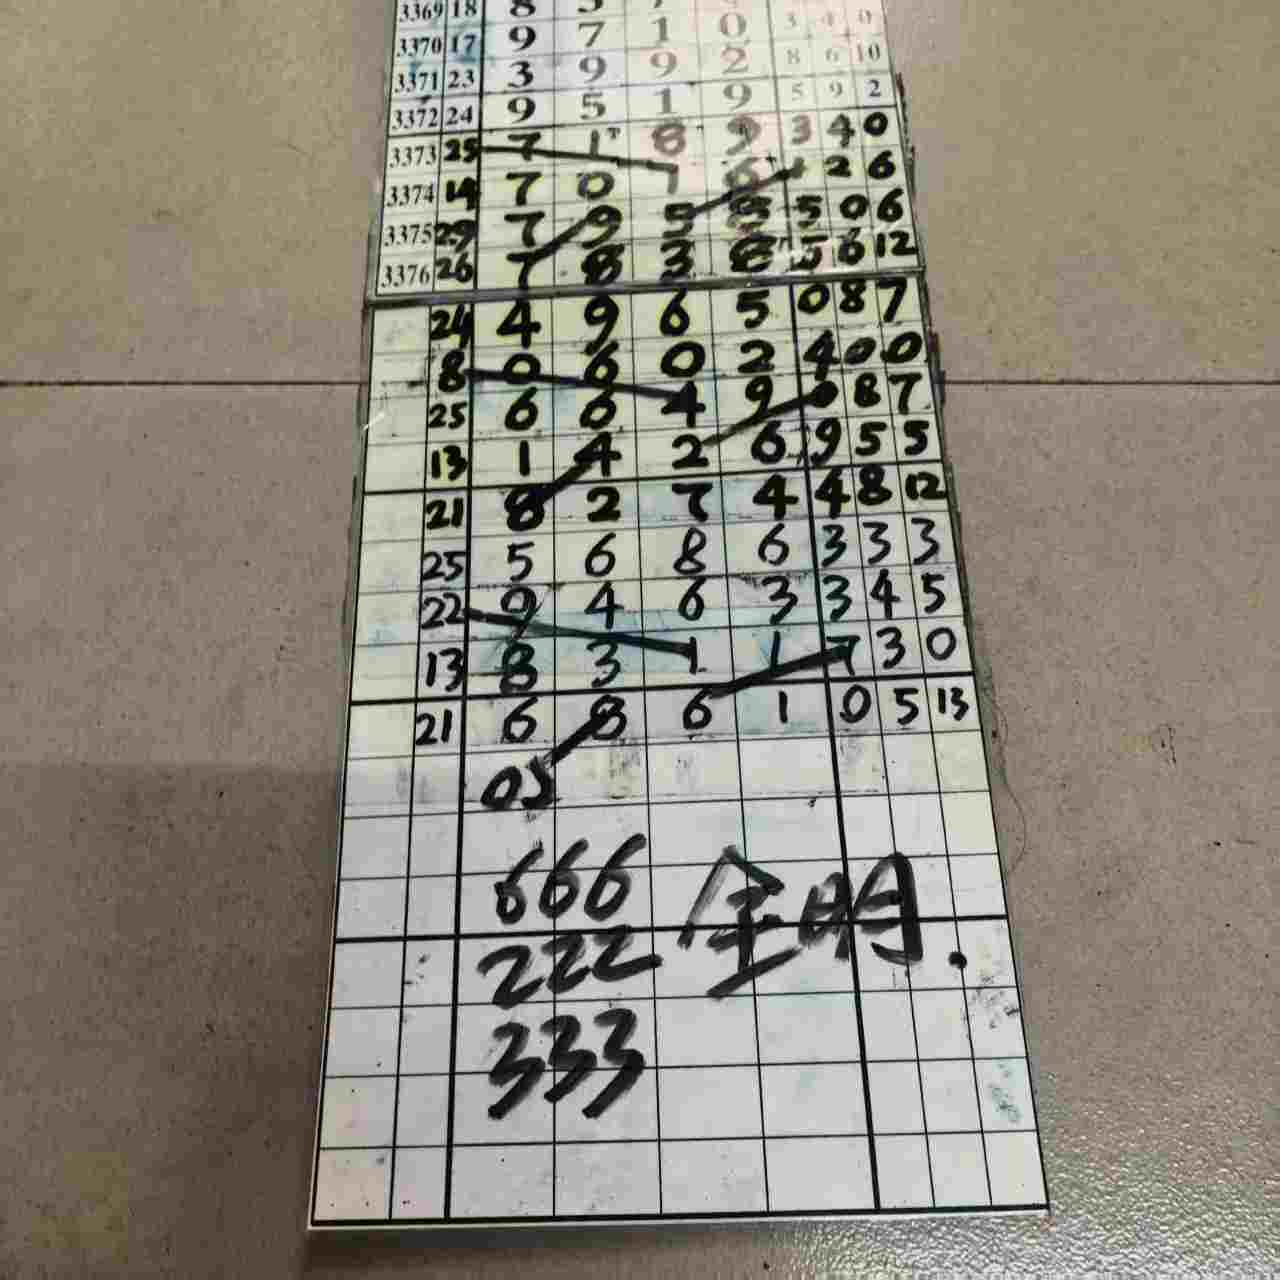 3369 18 8 5
3370 17 9 7 1 0 3 4 0
3371 23 3 9 9 2 8 6 10
3372 24 9 5 1 9 5 9 2
3373 25 7 1 8 9 3 4 0
3374 14 7 0 1 6 2 6
3375 29 7 9 5 8 5 0 6
3376 26 7 8 3 8 5 6 12
24 4 9 6 5 0 8 7
8 0 6 0 2 4 0 0
25 6 6 4 9 0 8 7
13 1 4 2 6 9 5 5
21 8 2 7 4 4 8 12
25 5 6 8 6 3 3 3
22 9 4 6 3 3 4 5
13 8 3 1 1 7 3 0
21 6 8 6 1 0 5 13
05
666
222 全明.
333